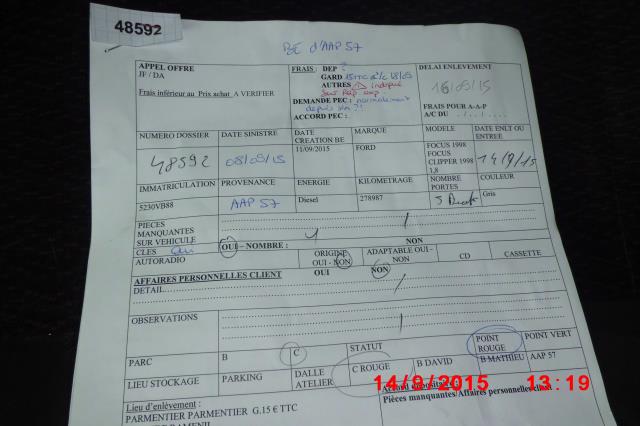 48592
BE d'AAP 57
APPEL OFFRE
JF / DA
Frais inférieur au Prix achat A VERIFIER
FRAIS : DEP ?
GARD 15TTC
AUTRES
DEMANDE PEC : normalement
depuis
ACCORD PEC :
DELAI ENLEVEMENT
16/09/15
FRAIS POUR A-A-P
A/C DU . / . . / . . .
NUMERO DOSSIER DATE SINISTRE DATE CREATION BE MARQUE MODELE DATE ENLT OU ENTREE
48592 08/09/15 11/09/2015 FORD FOCUS 1998 FOCUS CLIPPER 1998 1,8 14/9/15
IMMATRICULATION PROVENANCE ENERGIE KILOMETRAGE NOMBRE PORTES COULEUR
5230VB88 AAP 57 Diesel 278987 5 Gris
PIECES
MANQUANTES
SUR VEHICULE
CLES OUI – NOMBRE : NON
AUTORADIO ORIGINE OUI - NON ADAPTABLE OUI - NON CD CASSETTE
AFFAIRES PERSONNELLES CLIENT OUI NON
DETAIL
OBSERVATIONS
PARC B C STATUT POINT ROUGE POINT VERT
LIEU STOCKAGE PARKING DALLE ATELIER C ROUGE B DAVID B MATHIEU AAP 57
14/9/2015 13:19
Lieu d'enlèvement :
Pièces manquantes/Affaires personnelles client
PARMENTIER PARMENTIER G.15 € TTC